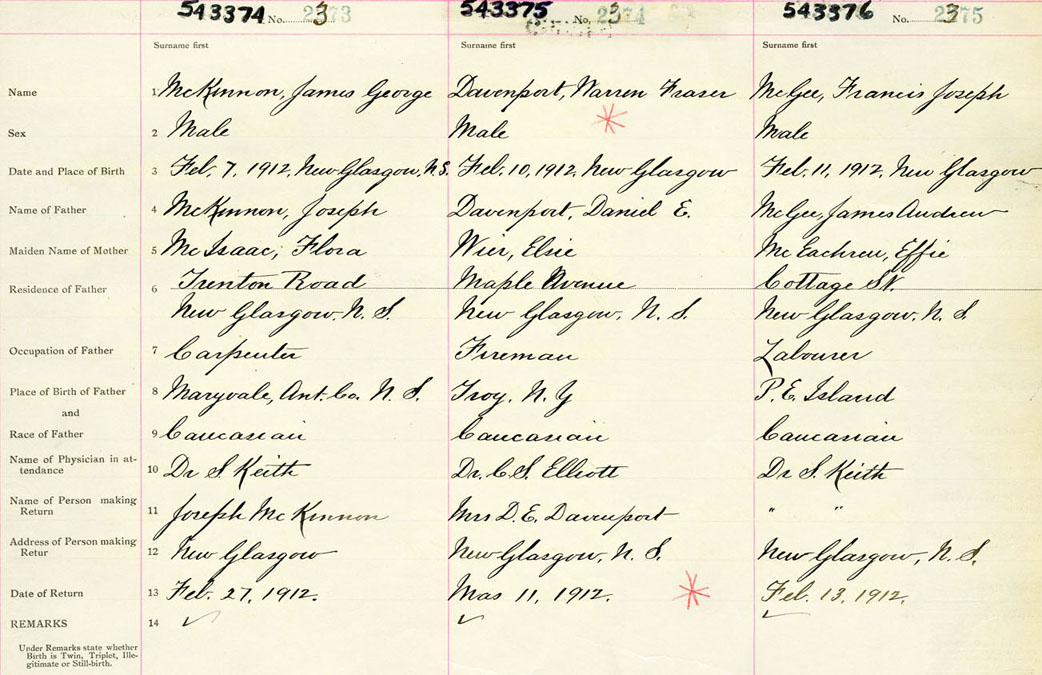 543374 No. 3 2373 543375 No. 3 2374 543376 No. 3 2375
Surname first Surname first Surname first
Name 1 McKinnon, James George Davenport, Warren Fraser McGee, Francis Joseph
Sex 2 Male Male Male
Date and Place of Birth 3 Feb. 7, 1912, New Glasgow, N.S. Feb. 10, 1912, New Glasgow Feb. 11, 1912, New Glasgow
Name of Father 4 McKinnon, Joseph Davenport, Daniel E. McGee, James Andrew
Maiden Name of Mother 5 McIsaac, Flora Wier, Elsie McEachren, Effie
Residence of Father 6 Trenton Road Maple Avenue Cottage St.
New Glasgow. N. S. New Glasgow, N. S. New Glasgow, N. S.
Occupation of Father 7 Carpenter Fireman Labourer
Place of Birth of Father 8 Maryvale, Ant. Co. N. S. Troy, N. Y P. E. Island
and
Race of Father 9 Caucasian Caucasian Caucasian
Name of Physician in at-
tendance 10 Dr S. Keith Dr. C. S. Elliott Dr S. Keith
Name of Person making
Return 11 Joseph McKinnon Mrs D. E. Davenport " "
Address of Person making
Retur 12 New Glasgow New Glasgow, N. S. New Glasgow, N. S.
Date of Return 13 Feb. 27, 1912. Mar 11, 1912. Feb. 13, 1912.
REMARKS 14
Under Remarks state whether
Birth is Twin, Triplet, Ille-
gitimate or Still-birth.